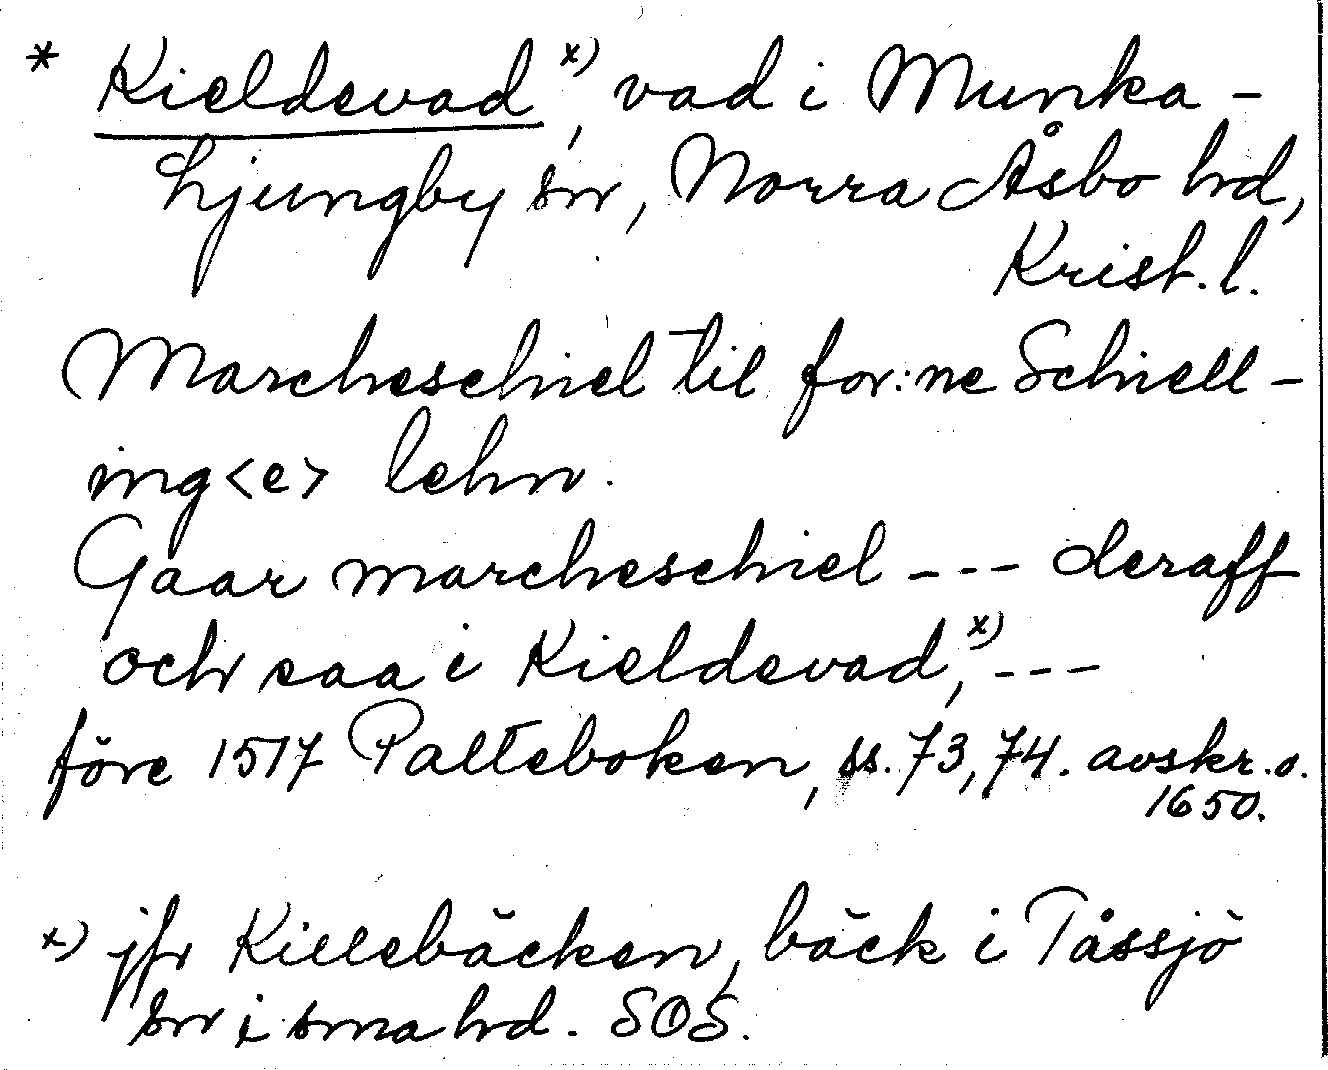 * Kieldevad x), vad i Munka-
Ljungby sn, Norra Åsbo hd,
Krist. l.
Marcheschiel til for:ne Schiell-
ing<e> lehn.
Gaar marcheschiel --- deraff
och saa i Kieldevad x), ---
före 1517 Palteboken, ss. 73, 74. avskr. o.
1650.
x) jfr Killebäcken, bäck i Tåssjö
sn i sma hd. SOS.